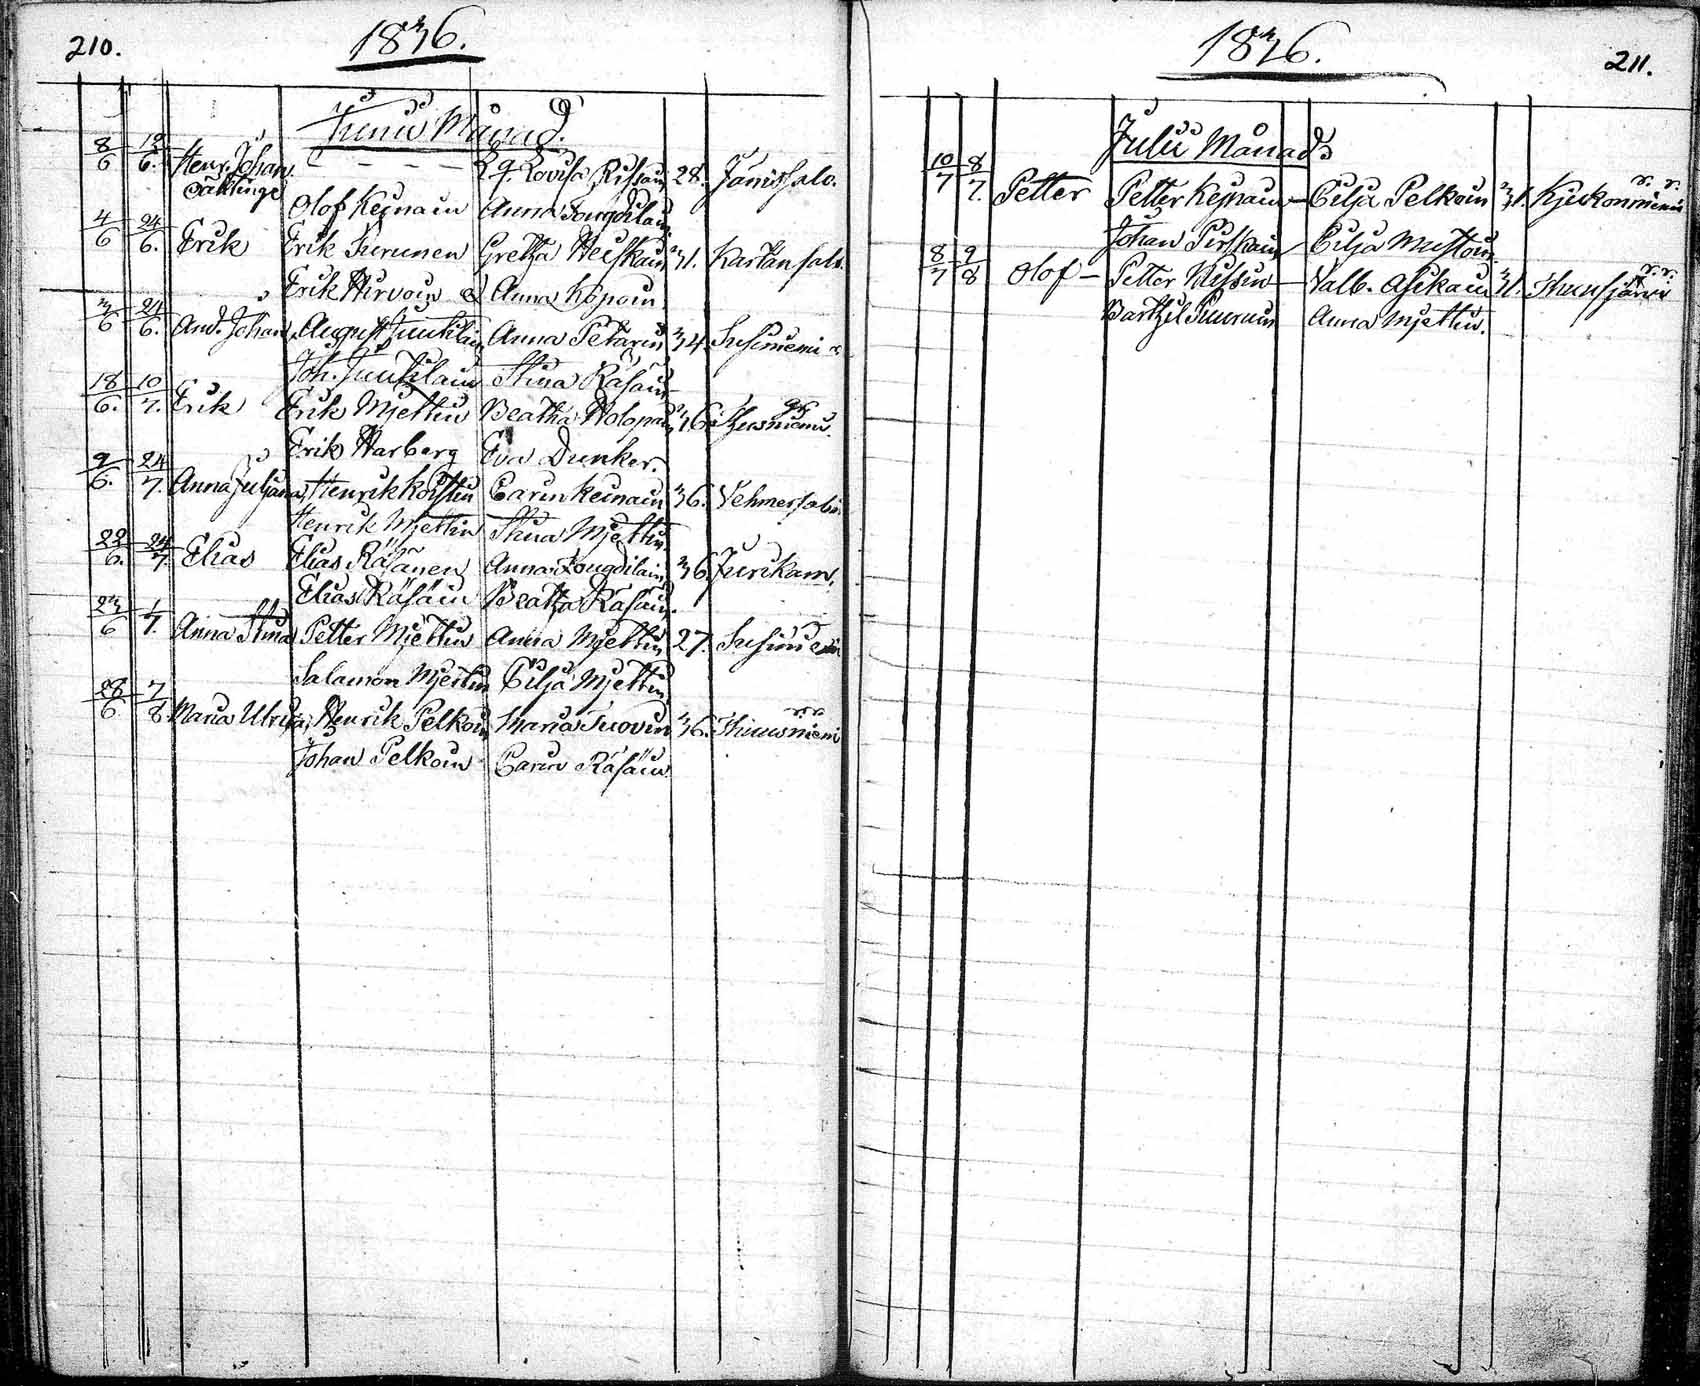 210.
1836.
Junii Månad.
8/6 12/6. Henr. Johan L. q. Lovisa Rissan 28. Jänissalo.
Olof Keinain Anna
4/6 24/6. Erik Erik Turunen Gretha Heiskain 31. Kartansalo.
Erik Hirvoin Anna Kopoin
3/6 24/6. And. Johan August Juutilain Anna Petarin 34. Susiniemi
Joh. Juutilain Stina Räsäin
18/6. 10/7. Erik Erik Mjettin Beatha Holopain 36.
Erik Warberg Eva Dunker.
9/6. 24/7. Anna Juljana Henrik Korstin Carin Keinain 36. Vehmersalmi
Henrik Mjettin Stina Mjettin
22/6. 24/7. Elias Elias Räsänen Anna Lougdilain 36 Jurikam.
Elias Räsäin Beatha Räsäin.
23/6 1/7. Anna Stina Petter Mjettin Anna Mjettin 27. Susiniemi
Salamon Mjettin Cilja Mjettin
28/6 7/8 Maria Ulrika Henrik Pelkoin Maria Tuovin 36.
Johan Pelkoin Carin Räsäin
1836.
211.
Julii Månad
10/7 8/7. Petter Petter Kejnain – Cilja Pelkoin 31.
Johan Pirskain Cilja Mustoin
8/7 9/8 Olof – Petter Nissin – Valb. Asikain 31.
Barthil Tuurun Anna Mjettin.